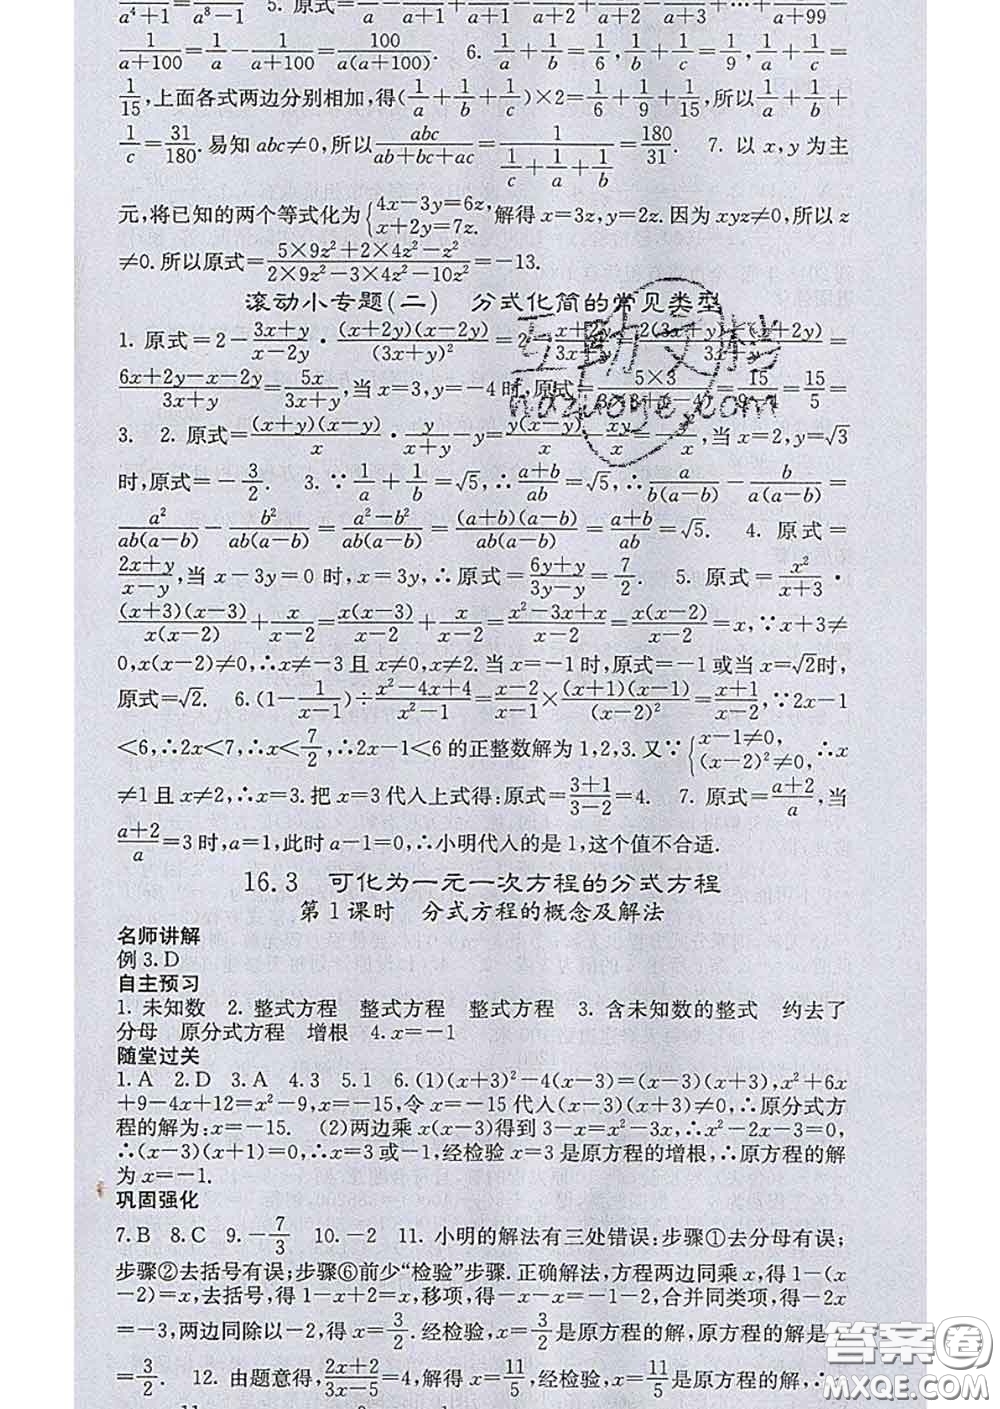 a⁴+1 a⁸-1 5. 原式= a a+1 a+1 a+2 a+2 a+3 +…+ a+99
1/(a+100)=1/a-1/(a+100)=100/(a(a+100)). 6. 1/a+1/b=1/6,1/b+1/c=1/9,1/a+1/c=
1/15,上面各式两边分别相加,得(1/a+1/b+1/c)×2=1/6+1/9+1/15,所以1/a+1/b+
1/c=31/180.易知abc≠0,所以abc/(ab+bc+ac)=1/(1/c+1/a+1/b)=180/31. 7. 以x,y为主
元,将已知的两个等式化为{4x-3y=6z, x+2y=7z.解得x=3z,y=2z.因为xyz≠0,所以z
≠0.所以原式=(5×9z²+2×4z²-z²)/(2×9z²-3×4z²-10z²)=-13.
滚动小专题(二) 分式化简的常见类型
1. 原式=2-(3x+y)/(x-2y)·(x+2y)(x-2y)/(3x+y)²=2-(x+2y)/(3x+y)=2(3x+y)/(3x+y)-(x+2y)/
(6x+2y-x-2y)/(3x+y)=5x/(3x+y),当x=3,y=-4时,原式=5×3/(3×3+-4)=15/(9-4)=15/5=
3. 2. 原式=(x+y)(x-y)/x·y/(x+y)-y=y(x-y)/x-xy/x= ,当x=2,y=√3
时,原式=-3/2. 3.∵1/a+1/b=√5,∴(a+b)/ab=√5,∴a/(b(a-b))-b/(a(a-b))=
a²/(ab(a-b))-b²/(ab(a-b))=(a²-b²)/(ab(a-b))=(a+b)(a-b)/(ab(a-b))=(a+b)/ab=√5. 4. 原式=
(2x+y)/(x-y),当x-3y=0时,x=3y,∴原式=(6y+y)/(3y-y)=7/2. 5. 原式=x²/(x+3)·
(x+3)(x-3)/(x(x-2))+x/(x-2)=x(x-3)/(x-2)+x/(x-2)=(x²-3x+x)/(x-2)=x(x-2)/(x-2)=x,∵x+3≠
0,x(x-2)≠0,∴x≠-3且x≠0,x≠2.当x=-1时,原式=-1或当x=√2时,
原式=√2. 6.(1-1/(x-1))÷(x²-4x+4)/(x²-1)=(x-2)/(x-1)×(x+1)(x-1)/(x-2)²=(x+1)/(x-2),∵2x-1
<6,∴2x<7,∴x<7/2,∴2x-1<6的正整数解为1,2,3.又∵{x-1≠0, (x-2)²≠0,∴x
≠1且x≠2,∴x=3.把x=3代入上式得:原式=(3+1)/(3-2)=4. 7. 原式=(a+2)/a,当
(a+2)/a=3时,a=1,此时a-1=0,∴小明代入的是1,这个值不合适.
16.3 可化为一元一次方程的分式方程
第1课时 分式方程的概念及解法
名师讲解
例3.D
自主预习
1. 未知数 2. 整式方程 整式方程 整式方程 3. 含未知数的整式 约去了
分母 原分式方程 增根 4.x=-1
随堂过关
1.A 2.D 3.A 4.3 5.1 6.(1)(x+3)²-4(x-3)=(x-3)(x+3),x²+6x
+9-4x+12=x²-9,x=-15,令x=-15代入(x-3)(x+3)≠0,∴原分式方
程的解为:x=-15. (2)两边乘x(x-3)得到3-x=x²-3x,∴x²-2x-3=0,
∴(x-3)(x+1)=0,∴x=3或-1,经检验x=3是原方程的增根,∴原方程的解
为x=-1.
巩固强化
7.B 8.C 9.-7/3 10.-2 11. 小明的解法有三处错误:步骤①去分母有误;
步骤②去括号有误;步骤⑥前少“检验”步骤.正确解法,方程两边同乘x,得1-(x
-2)=x,去括号,得1-x+2=x,移项,得-x-x=-1-2,合并同类项,得-2x
=-3,两边同除以-2,得x=3/2.经检验,x=3/2是原方程的解,原方程的解是
=3/2. 12. 由题意得,(2x+2)/(3x-5)=4,解得x=11/5,经检验,x=11/5是原方程的解,
答案圈
MXQE.COM
互助文档
hazuoye.com